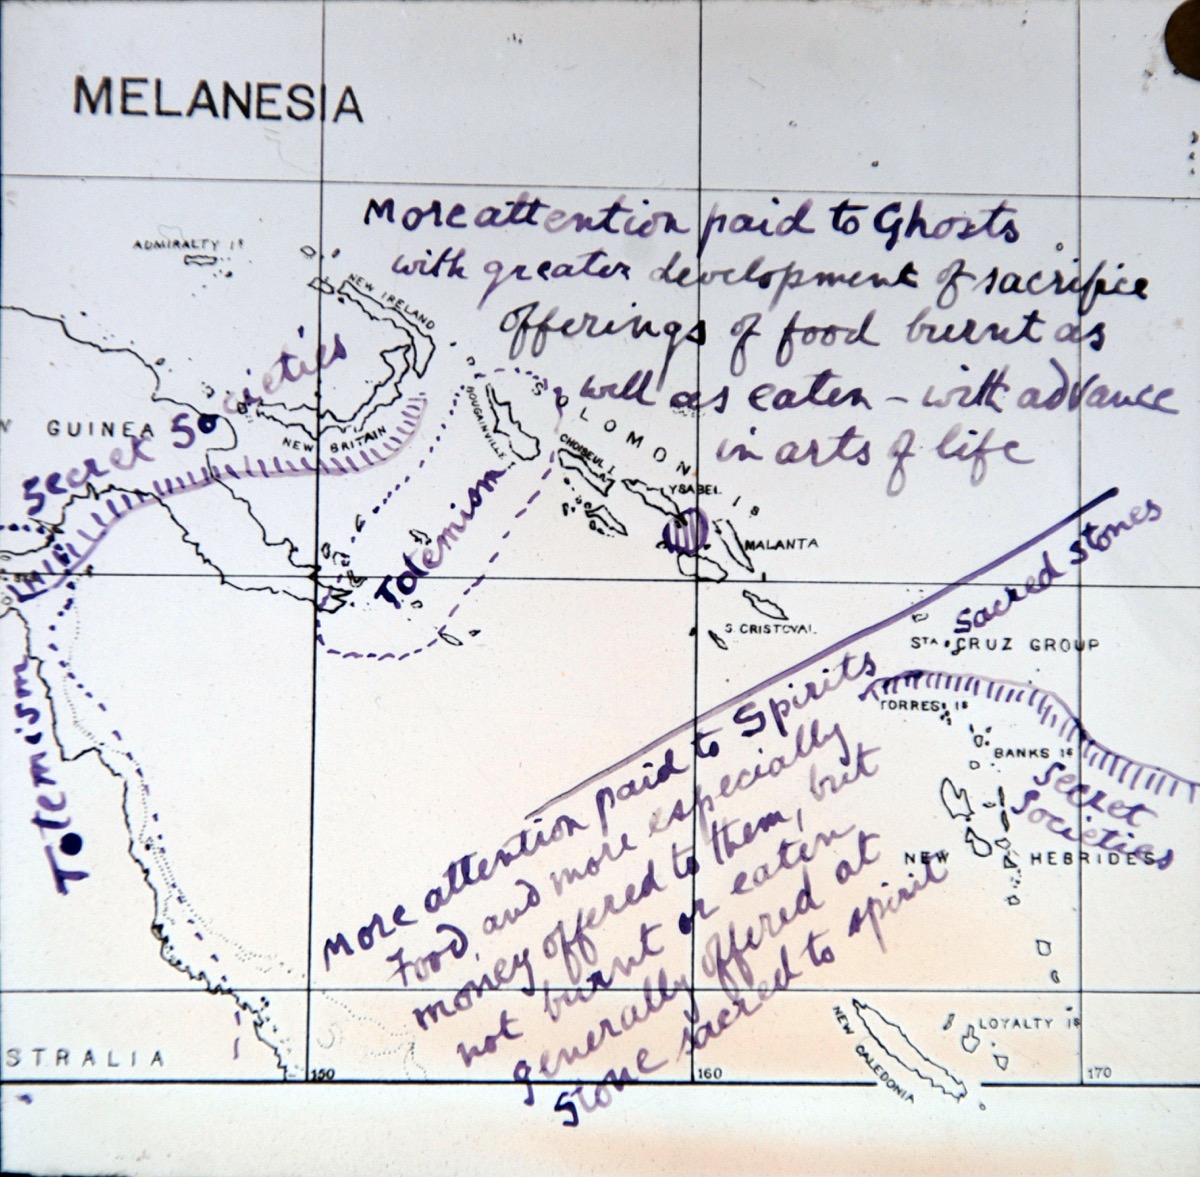 MELANESIA
More attention paid to Ghosts
with greater development of sacrifice
offerings of food burnt as
well as eaten – with advance
in arts of life
ADMIRALTY Iˢ
NEW IRELAND
Secret Societies
GUINEA
NEW BRITAIN
BOUGAINVILLE I.
SOLOMON Iˢ
CHOISEUL I.
YSABEL
MALANTA
Totemism
S. CRISTOVAL
Sacred Stones
Sᵀᴬ CRUZ GROUP
TORRES Iˢ
BANKS Iˢ
Secret
Societies
NEW HEBRIDES
Totemism
More attention paid to Spirits
Food and more especially
money offered to them, but
not burnt or eaten
generally offered at
stone sacred to spirit
NEW CALEDONIA
LOYALTY Iˢ
STRALIA
150
160
170